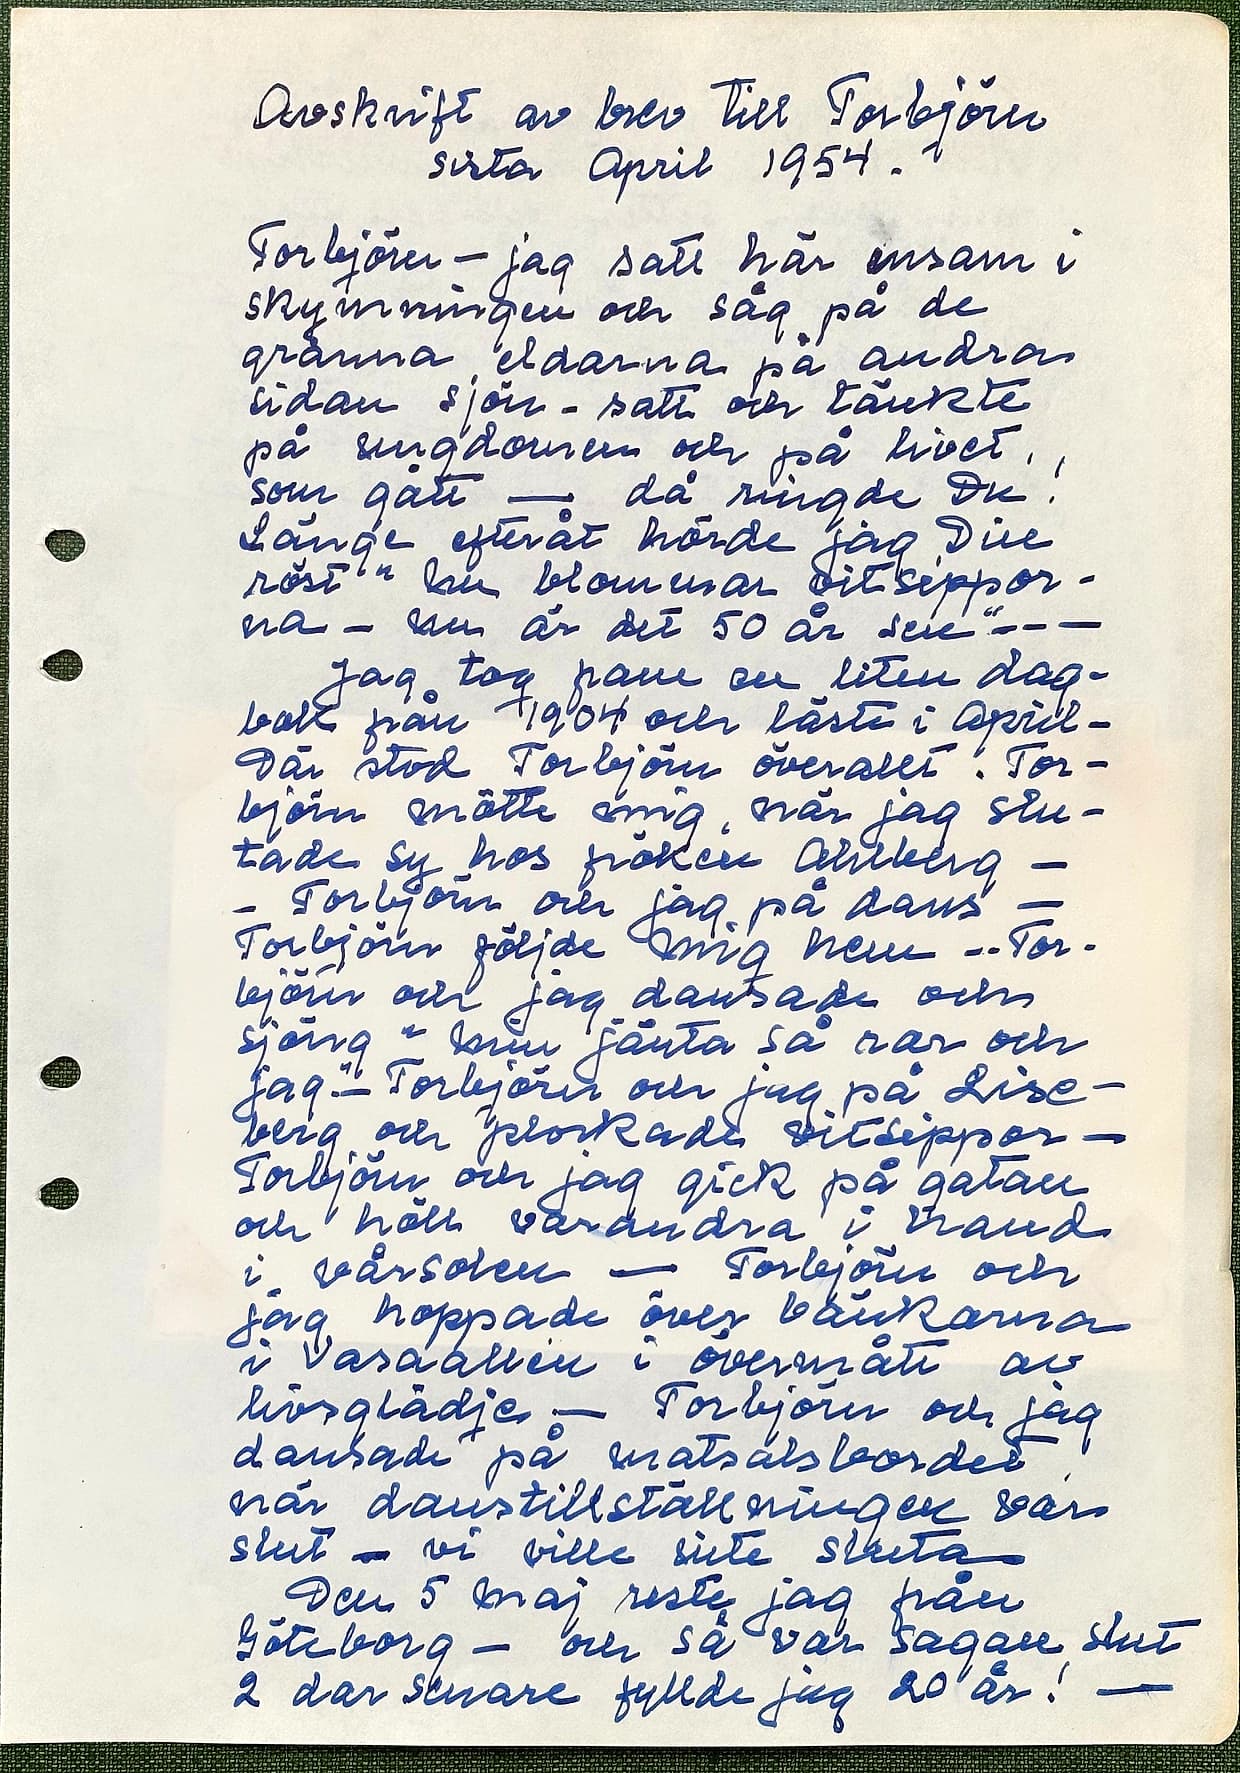 Avskrift av brev till Torbjörn
sista April 1954.
Torbjörn – jag satt här ensam i
skymningen och såg på de
granna eldarna på andra
sidan sjön - satt och tänkte
på ungdomen och på livet,
som gått — då ringde Du!
Länge efteråt hörde jag Din
röst "nu blommar vitsippor-
na – nu är det 50 år sen" ---
Jag tog fram en liten dag-
bok från 1904 och läste i April -
Där stod Torbjörn överallt. Tor-
björn mötte mig, när jag slu-
tade sy hos fröken Ahlberg —
- Torbjörn och jag på dans —
Torbjörn följde mig hem -- Tor-
björn och jag dansade och
sjöng "min jänta så rar och
jag" – Torbjörn och jag på Lise-
berg och plockade vitsippor —
Torbjörn och jag gick på gatan
och höll varandra i hand
i vårsolen — Torbjörn och
jag hoppade över bänkarna
i Vasaallén i övermått av
livsglädje — Torbjörn och jag
dansade på matsalsbordet,
när danstillställningen var
slut – vi ville inte sluta
Den 5 maj reste jag från
Göteborg – och så var sagan slut
2 dar senare fyllde jag 20 år! —